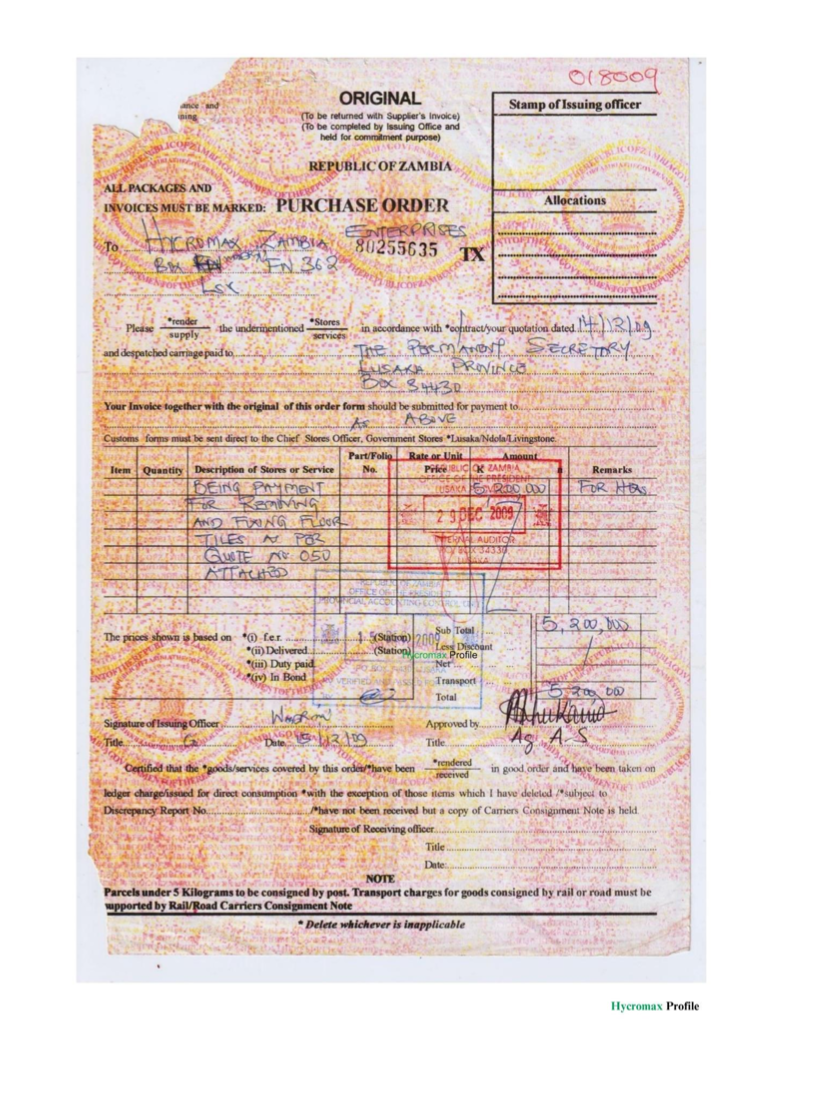 018009
ance and
ORIGINAL
(To be returned with Supplier's Invoice)
(To be completed by Issuing Office and
held for commitment purpose)
Stamp of Issuing officer
REPUBLIC OF ZAMBIA
ALL PACKAGES AND
INVOICES MUST BE MARKED: PURCHASE ORDER
Allocations
To HYCROMAX ZAMBIA ENTERPRISES
80255635 TX
BOX FN 362
LSK
Please *render / supply the undermentioned *Stores / services in accordance with *contract/your quotation dated 14/12/09
and despatched carriage paid to THE PERMANENT SECRETARY
LUSAKA PROVINCE
BOX 34430
Your Invoice together with the original of this order form should be submitted for payment to
AS ABOVE
Customs forms must be sent direct to the Chief Stores Officer, Government Stores *Lusaka/Ndola/Livingstone.
Item Quantity Description of Stores or Service Part/Folio No. Rate or Unit Price Amount K n Remarks
BEING PAYMENT 5,200,000 FOR HQs
FOR REMOVING
AND FIXING FLOOR
TILES AS PER
QUOTE No 050
ATTACHED
REPUBLIC OF ZAMBIA
OFFICE OF THE PRESIDENT
LUSAKA
29 DEC 2009
INTERNAL AUDITOR
LUSAKA
OFFICE OF THE PRESIDENT
PROVINCIAL ACCOUNTING CONTROL UNIT
2009
The prices shown is based on *(i) f.e.r.
*(ii) Delivered (Station)
(Station)
*(iii) Duty paid
*(iv) In Bond
Sub Total 5,200,000
Less Discount
Hycromax Profile
Net
Transport
Total 5,200,000
Signature of Issuing Officer
Approved by
Title
Date 15/12/09
Title Ag A-S
Certified that the *goods/services covered by this order/*have been *rendered / received in good order and have been taken on
ledger charge/issued for direct consumption *with the exception of those items which I have deleted /*subject to
Discrepancy Report No. /*have not been received but a copy of Carriers Consignment Note is held.
Signature of Receiving officer
Title
Date:
NOTE
Parcels under 5 Kilograms to be consigned by post. Transport charges for goods consigned by rail or road must be
supported by Rail/Road Carriers Consignment Note
* Delete whichever is inapplicable
Hycromax Profile